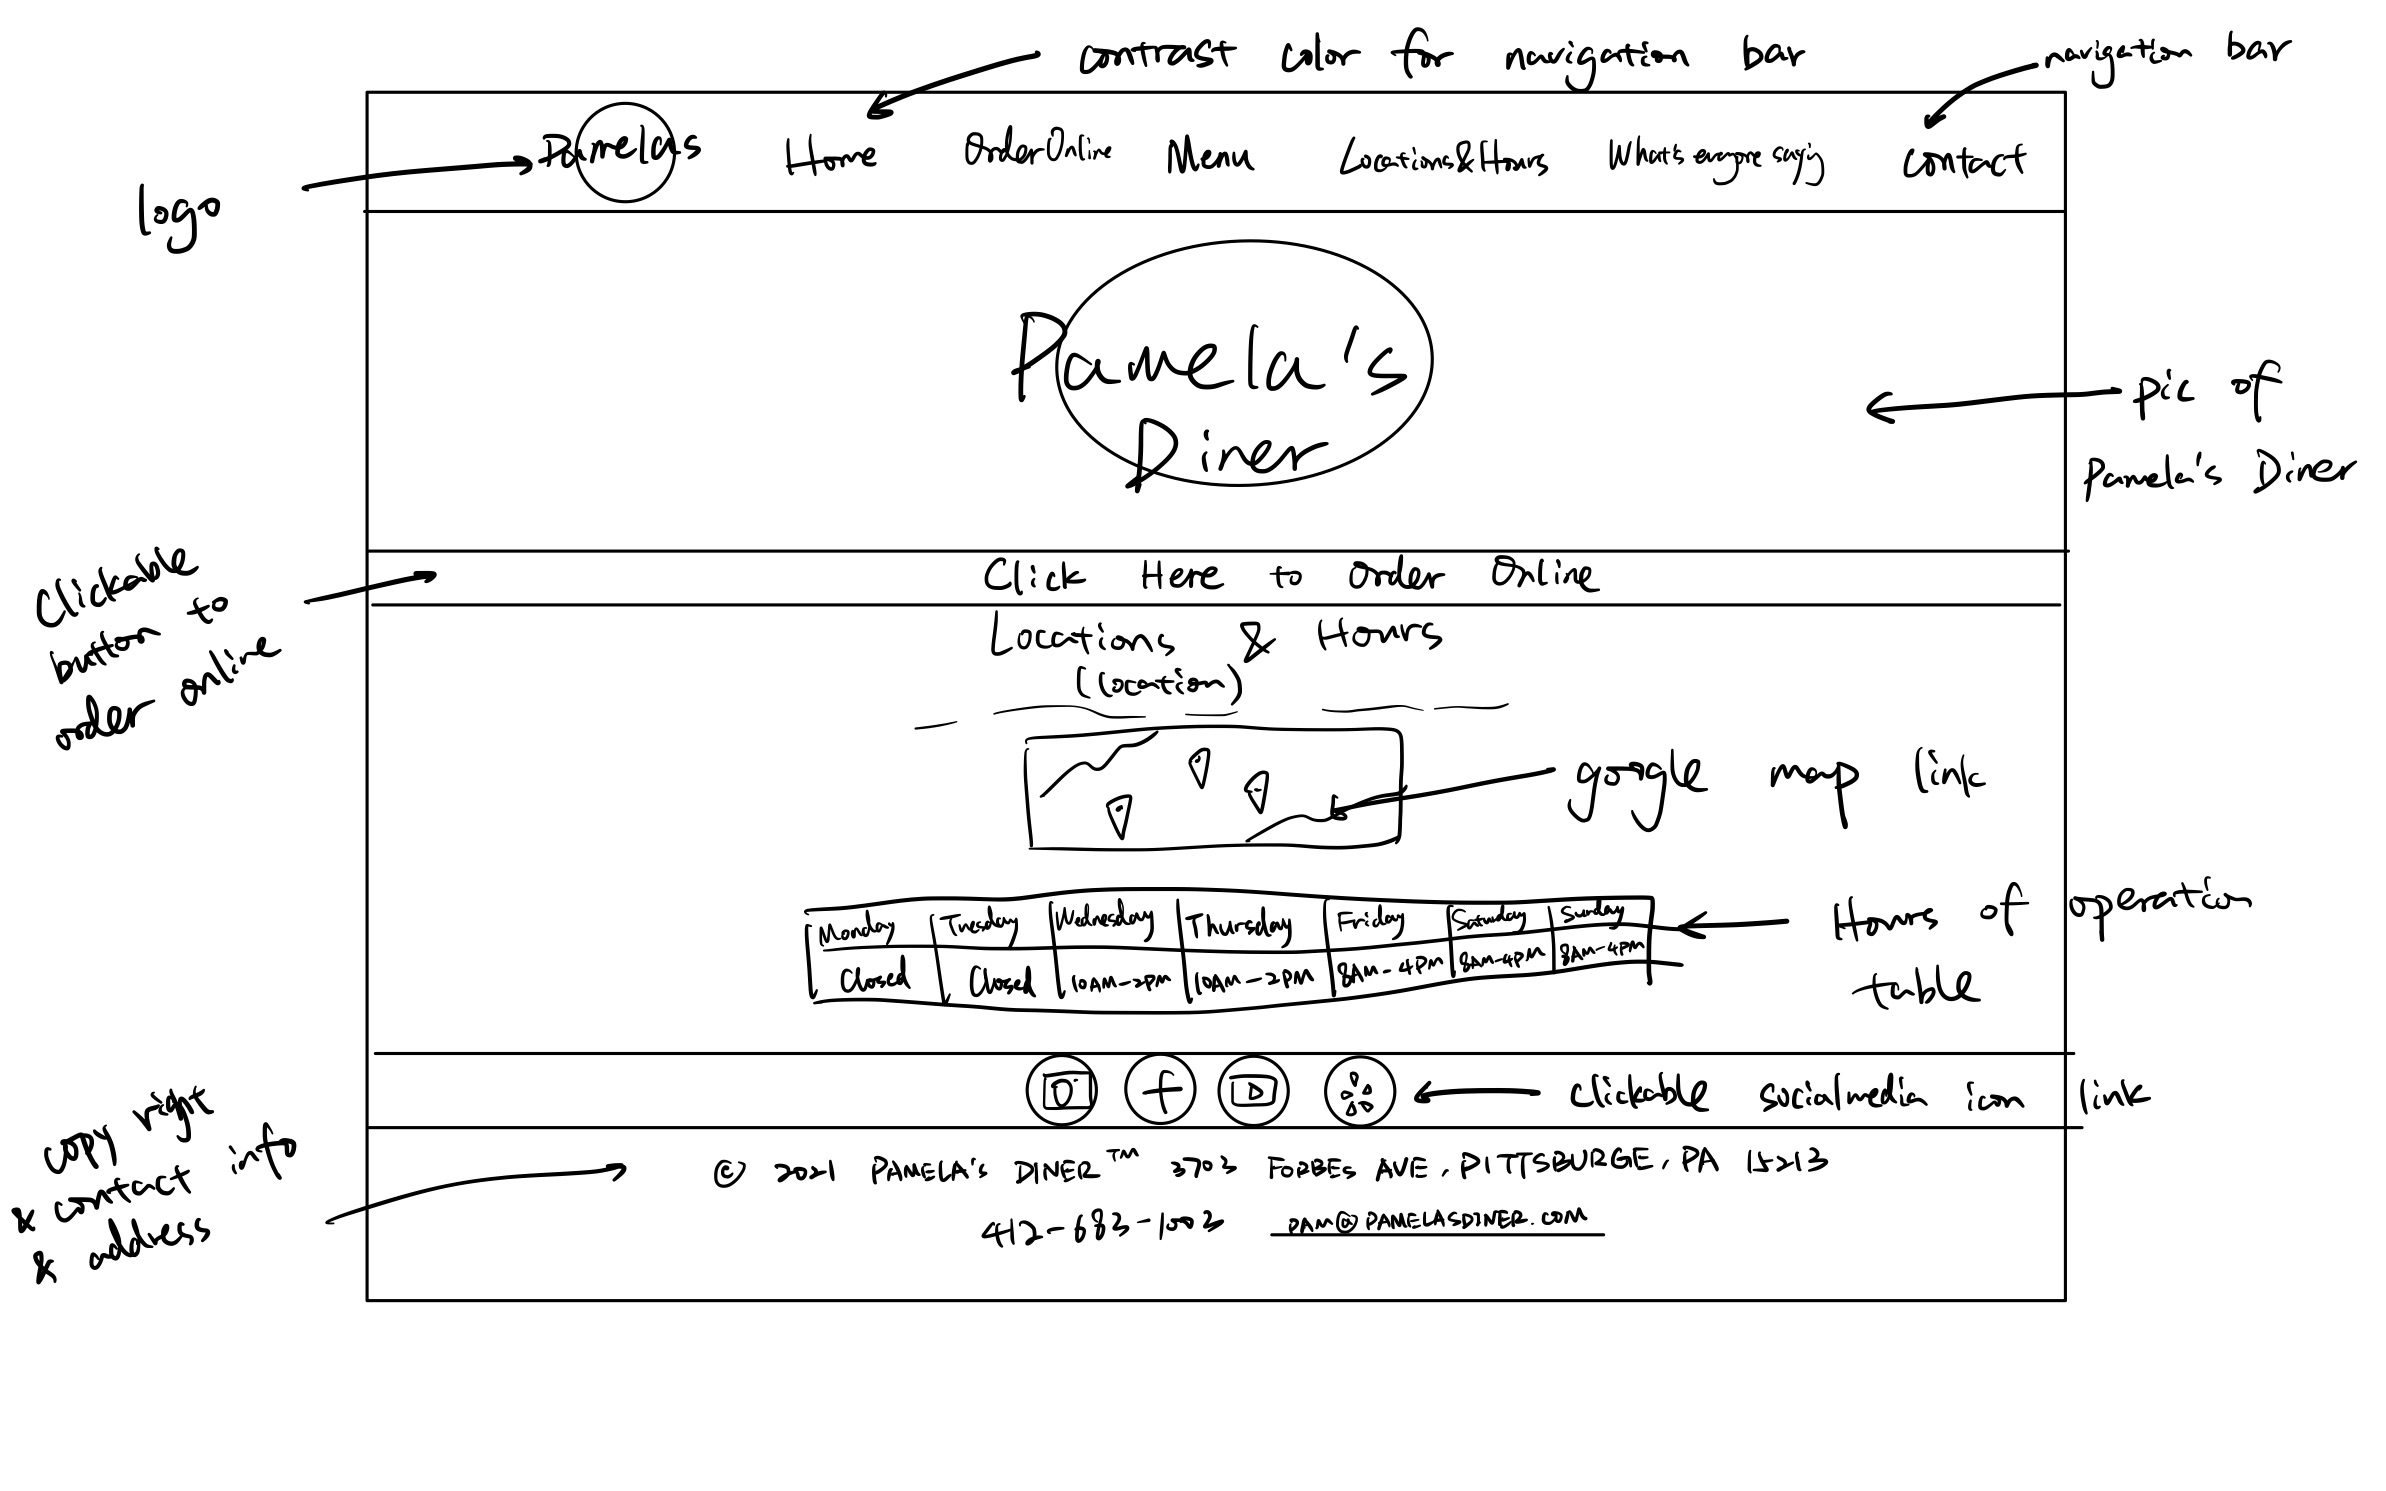 contrast color for navigation bar
navigation bar
logo
Pamelas Home OrderOnline Menu Locations&Hours What's everyone saying contact
Pamela's
Diner
pic of
Pamela's Diner
Clickable
button to
order online
Click Here to Order Online
Locations & Hours
(location)
google map link
Monday Tuesday Wednesday Thursday Friday Saturday Sunday
Closed Closed 10AM-2PM 10AM-2PM 8AM-4PM 8AM-4PM 8AM-4PM
Hours of operation
table
clickable socialmedia icon link
copy right
& contact info
& address
© 2021 PAMELA'S DINER™ 3703 FORBES AVE, PITTSBURGE, PA 15213
412-683-1003 PAM@PAMELASDINER.COM